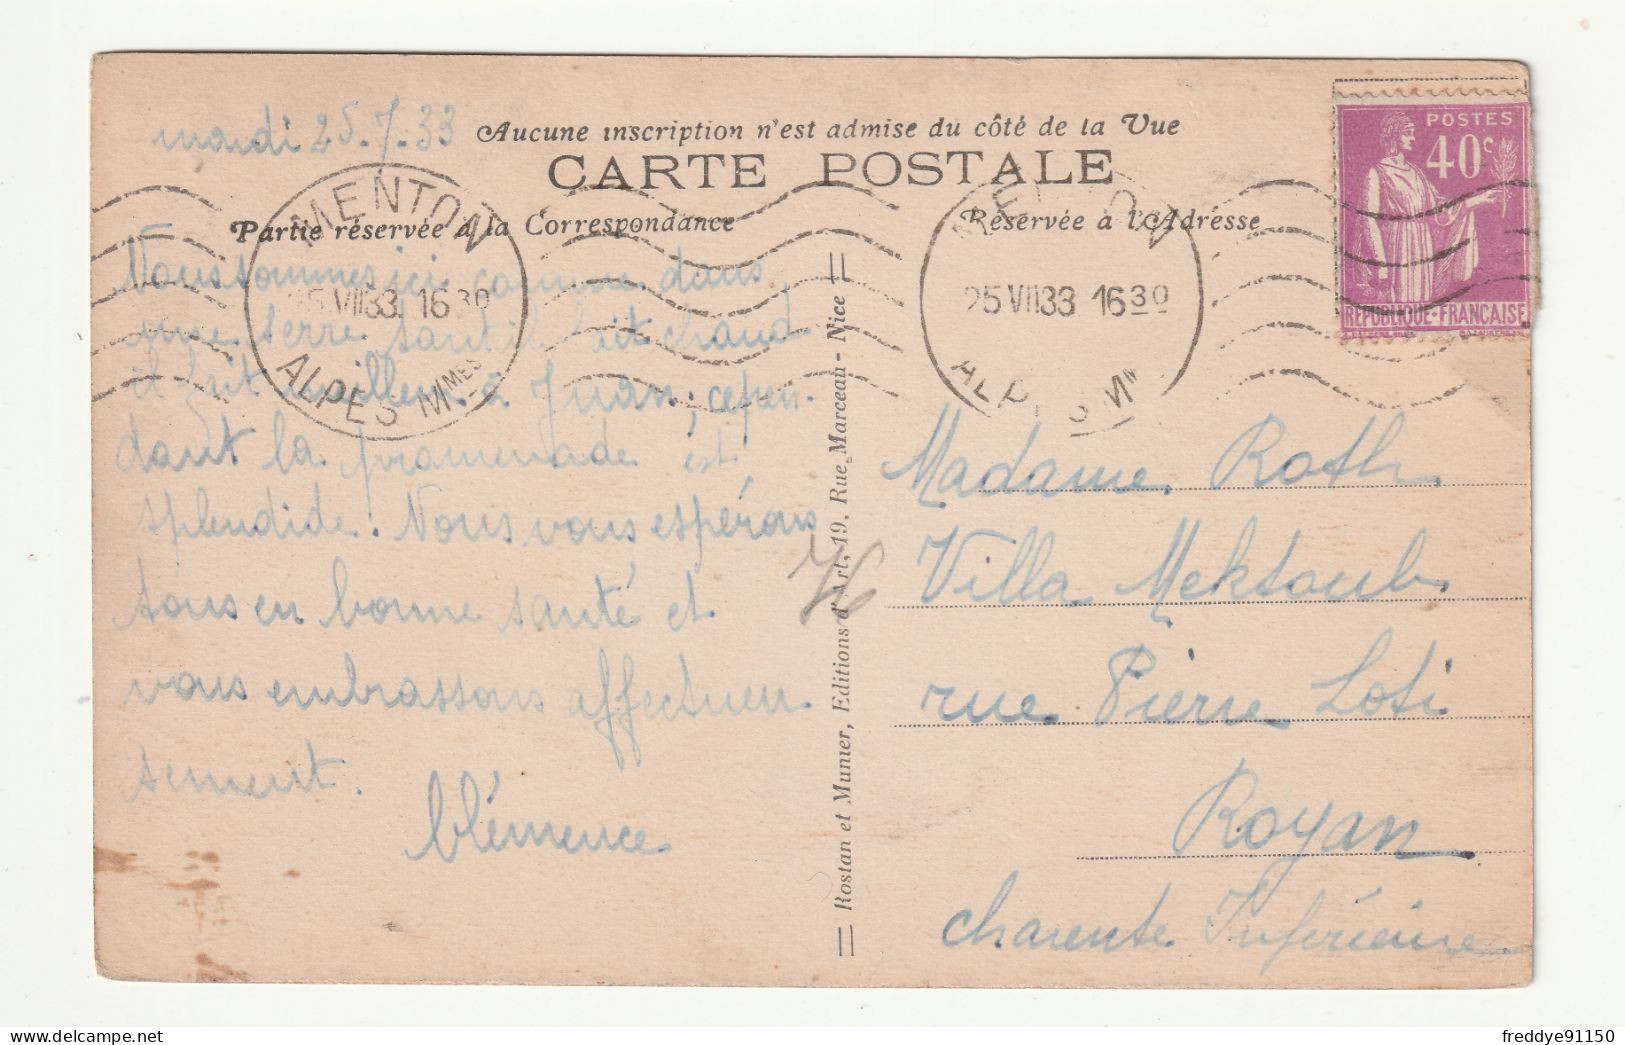 mardi 25.7.33
Aucune inscription n'est admise du côté de la Vue
CARTE POSTALE
Partie réservée à la Correspondance
Réservée à l'Adresse
POSTES
40c
REPUBLIQUE-FRANÇAISE
MENTON
25 VII 33 16 30
ALPES MMES
25 VII 33 16 30
Nous sommes ici comme dans
une serre tant il fait chaud
il fait meilleur à Juan, cepen-
dant la promenade est
splendide. Nous vous espérons
tous en bonne santé et
vous embrassons affectueu
sement.
Clémence
Rostan et Munier, Editions d'Art, 19, Rue Marceau - Nice
Madame Roth
Villa Mektoub
rue Pierre Loti
Royan
Charente Inférieure
freddye91150